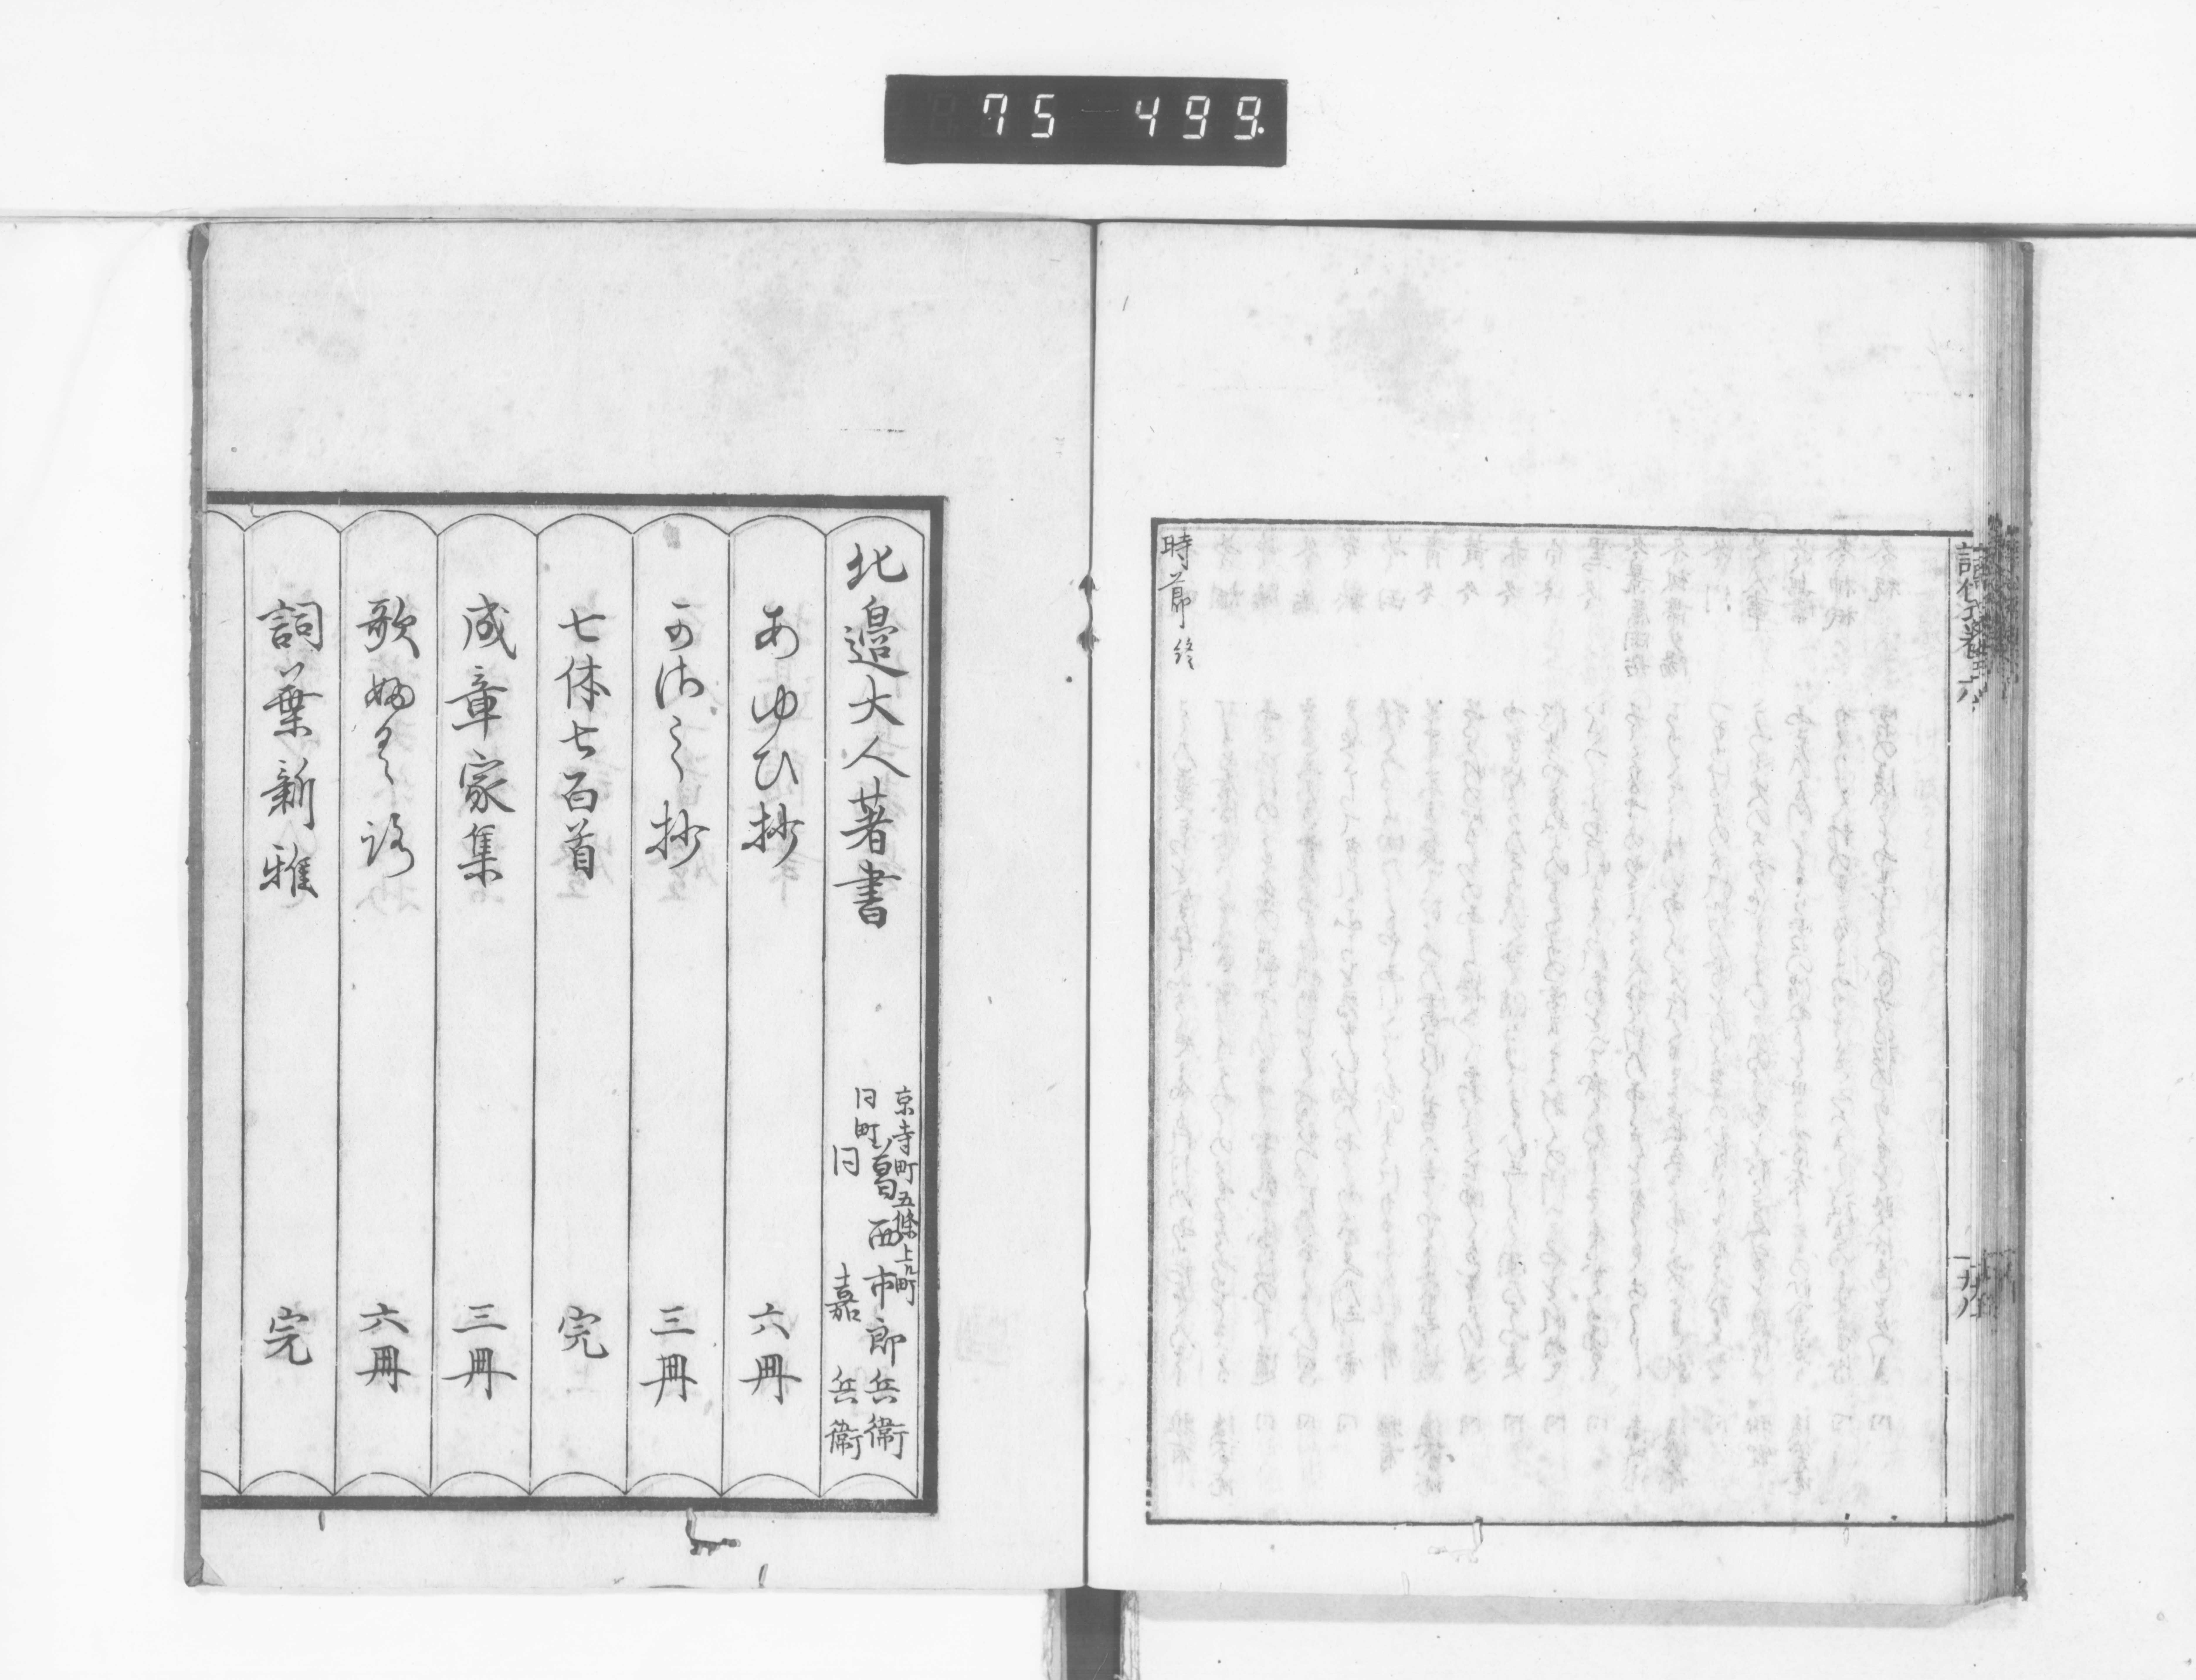 75 499
時節終
北邉大人著書
京寺町五條上ル町
同町
菖西市郎兵衛
同 嘉兵衛
あゆひ抄 六冊
かさし抄 三冊
七体七百首 完
成章家集 三冊
歌ふくろ 六冊
詞葉新雅 完